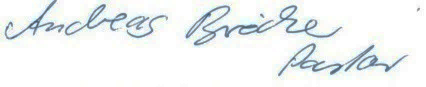 Andreas Bröcke
Pastor